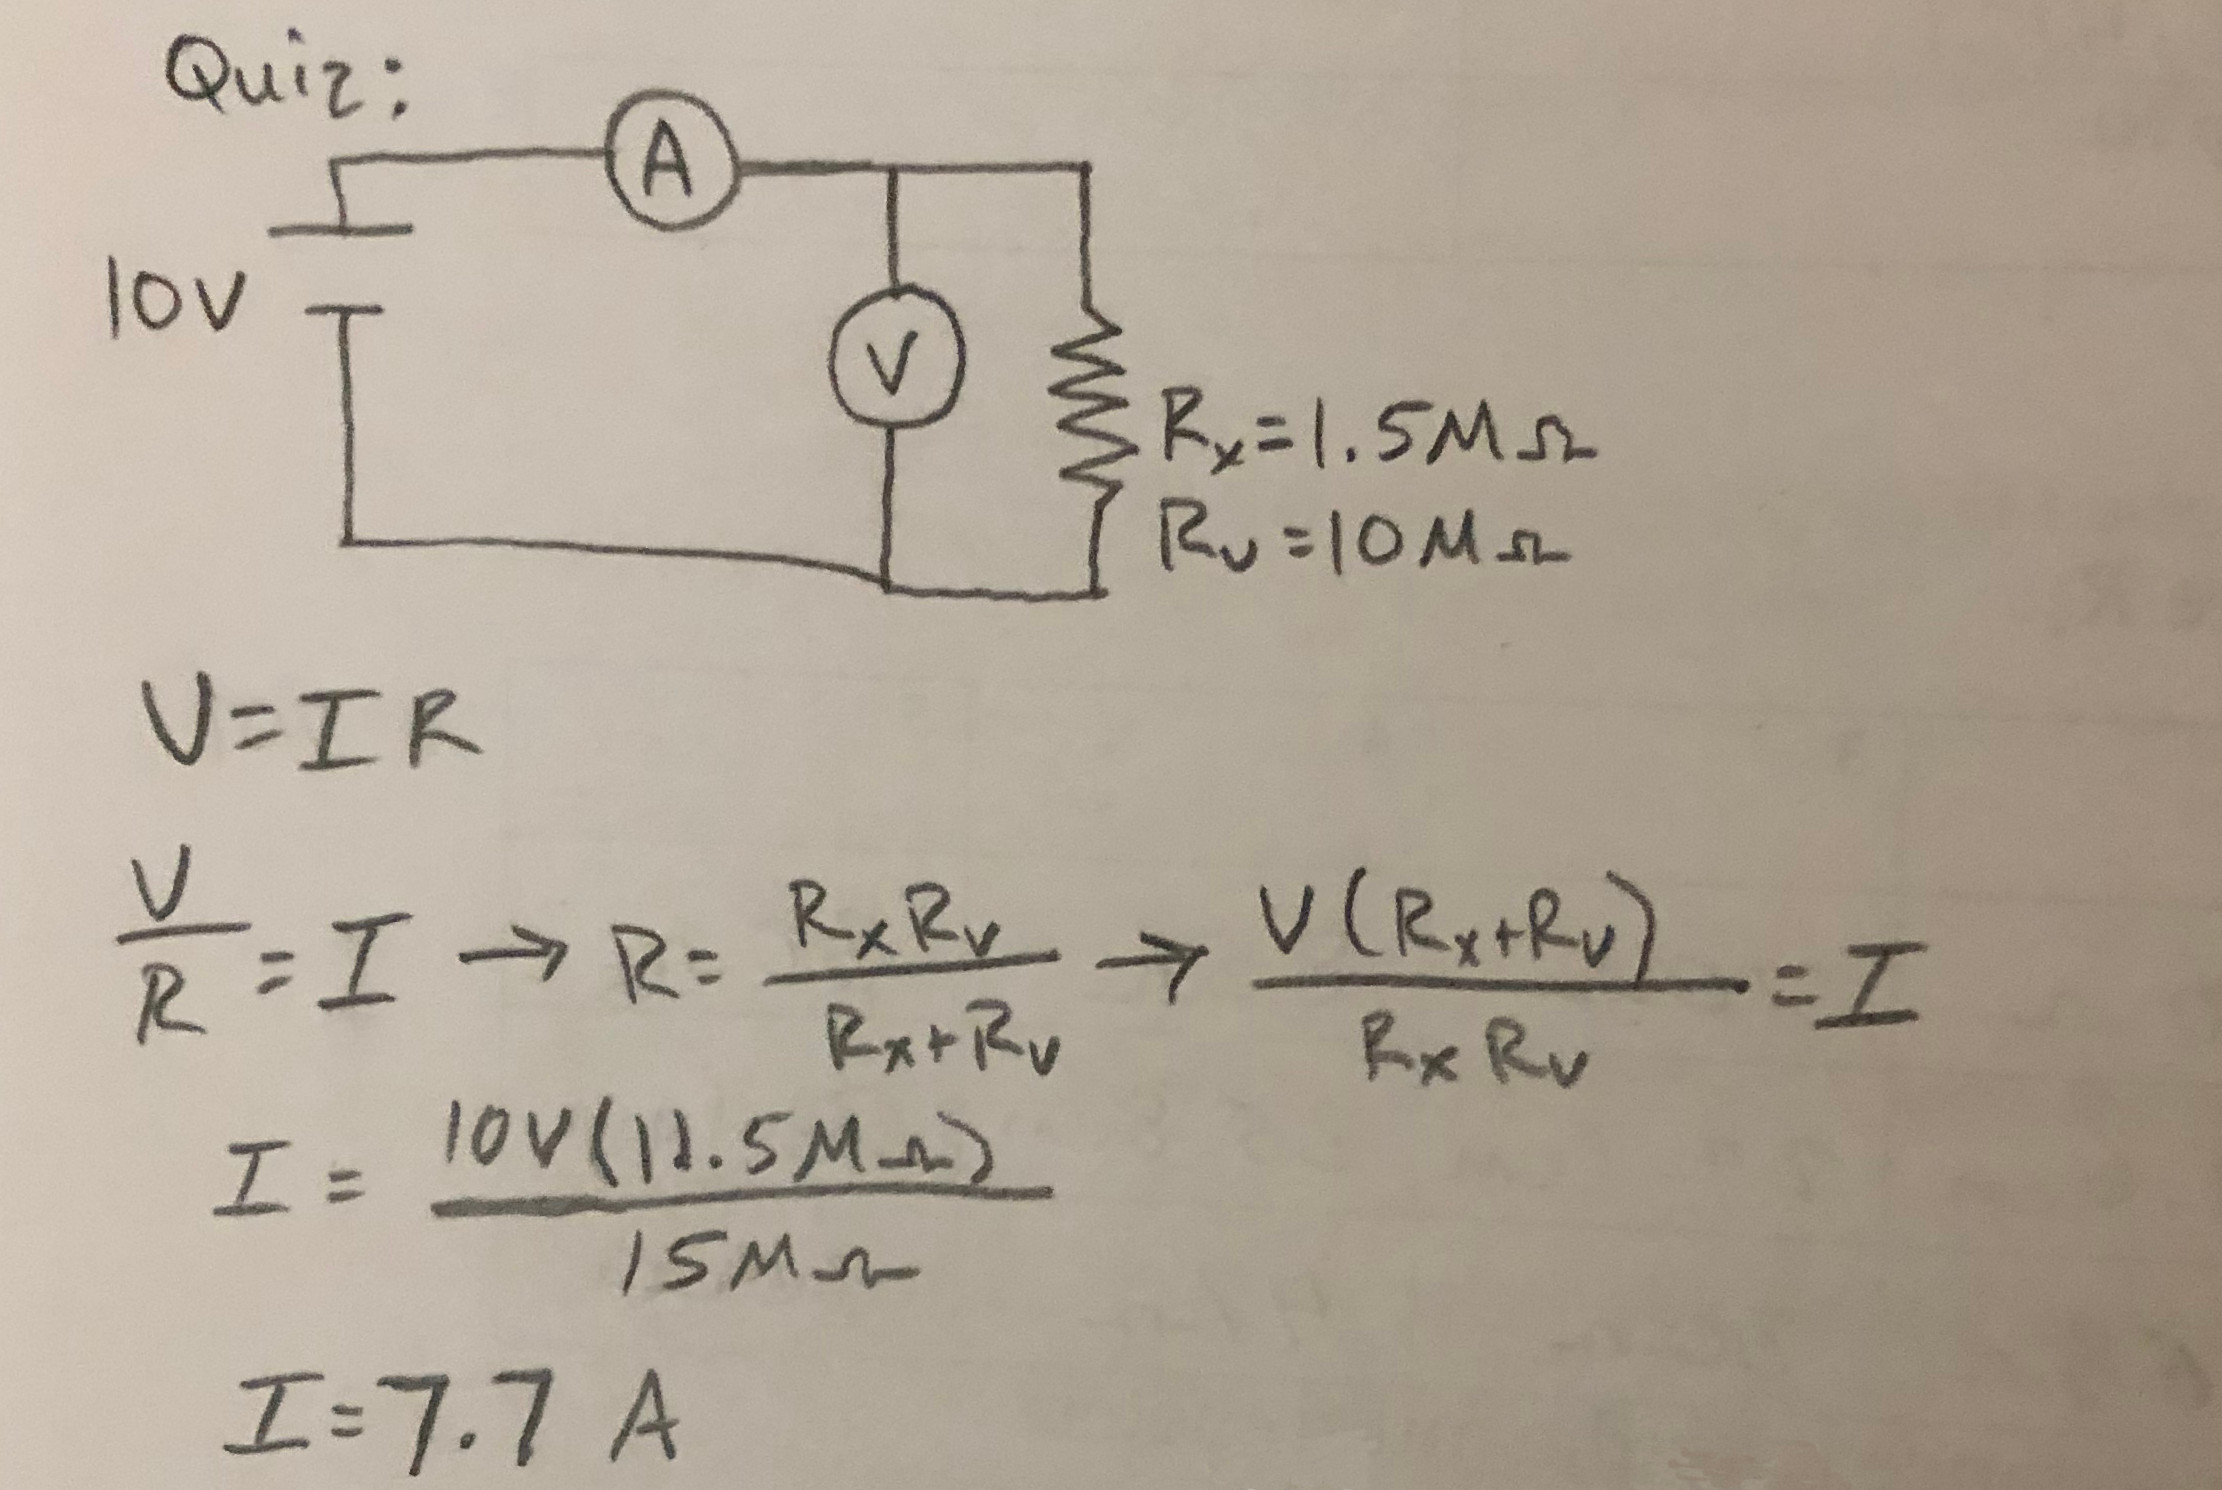 Quiz:
A
10V
V
Rx=1.5MΩ
Rv=10MΩ
V=IR
V/R=I → R=RxRv/Rx+Rv → V(Rx+Rv)/RxRv=I
I=10V(11.5MΩ)/15MΩ
I=7.7 A